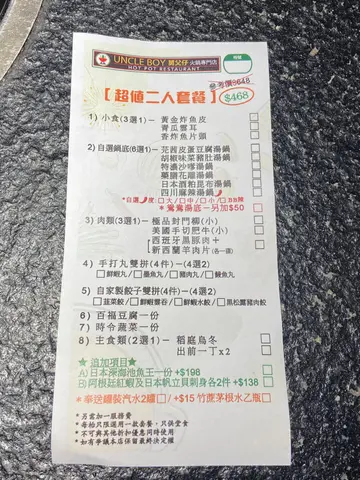 UNCLE BOY 舅父仔 火鍋專門店
HOT POT RESTAURANT
參考價$648
【超值二人套餐】 $468
1) 小食(3選1) - 黃金炸魚皮 □
青瓜雲耳 □
香炸魚片頭 □
2) 自選鍋底(6選1) - 芫茜皮蛋豆腐湯鍋 □
胡椒味菜豬肚湯鍋 □
特濃沙嗲湯鍋 □
藥膳花雕湯鍋 □
日本酒粕昆布湯鍋 □
四川麻辣湯鍋 □
*自選🌶度:□大/□中/□小/□BB辣
*鴛鴦湯底一另加$50 □
3) 肉類(3選1) - 極品封門柳(小) □
美國手切肥牛(小) □
西班牙黑豚肉+
新西蘭羊肉片(各一課) □
4) 手打丸雙拼(4件) - (4選2)
□鮮蝦丸/□墨魚丸/□豬肉丸/□鯪魚丸
5) 自家製餃子雙拼(4件) - (4選2)
□韮菜餃/□鮮蝦雲吞/□鮮蝦水餃/□黑松露豬肉餃
6) 百福豆腐一份
7) 時令蔬菜一份
8) 主食類(2選1) - 稻庭烏冬 □
出前一丁x2 □
★ 追加項目★
A)日本深海池魚王一份 +$198 □
B)阿根廷紅蝦及日本帆立貝刺身各2件 +$138 □
*奉送罐裝汽水2罐□/ +$15 竹蔗茅根水乙瓶□
*另需加一服務費
*每枱只限選用一款套餐,只供堂食
*不可與其他折扣優惠同時使用
*如有爭議本店保留最終決定權